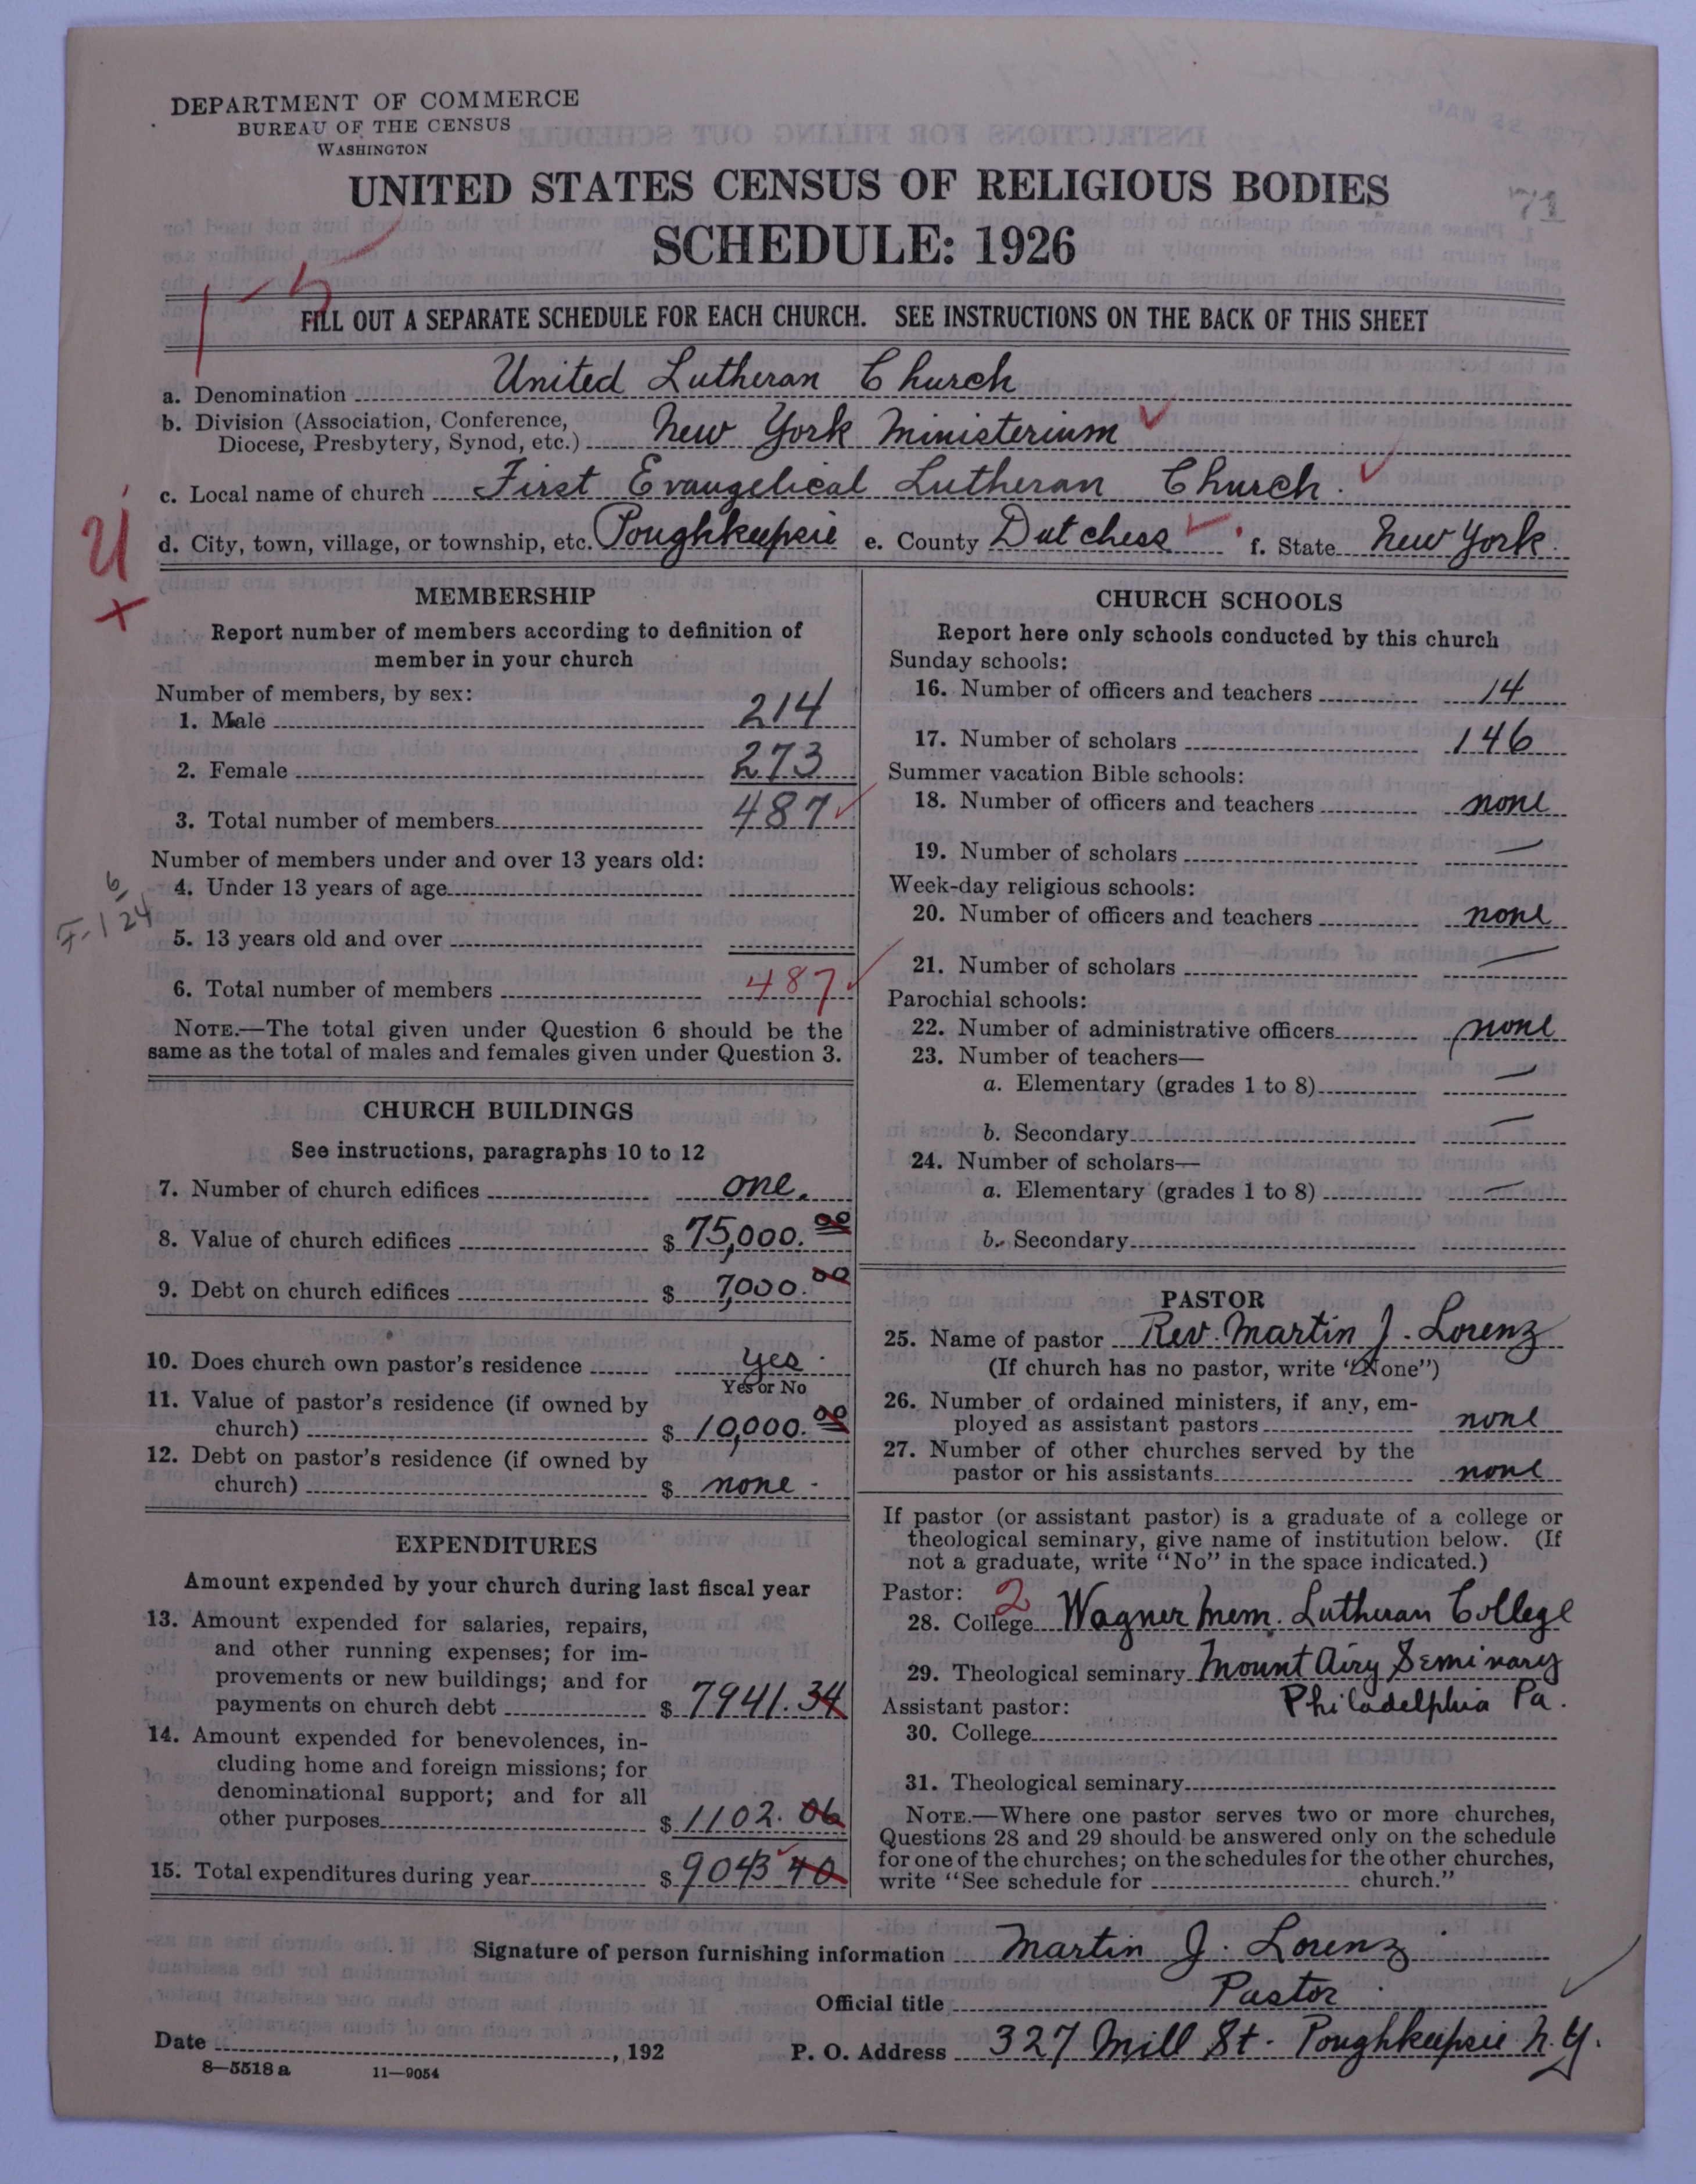 DEPARTMENT OF COMMERCE
BUREAU OF THE CENSUS
WASHINGTON
JAN 22
71
UNITED STATES CENSUS OF RELIGIOUS BODIES
SCHEDULE: 1926
FILL OUT A SEPARATE SCHEDULE FOR EACH CHURCH. SEE INSTRUCTIONS ON THE BACK OF THIS SHEET
a. Denomination United Lutheran Church
b. Division (Association, Conference,
Diocese, Presbytery, Synod, etc.) New York Ministerium
c. Local name of church First Evangelical Lutheran Church.
d. City, town, village, or township, etc. Poughkeepsie e. County Dutchess f. State New York.
MEMBERSHIP
Report number of members according to definition of
member in your church
Number of members, by sex:
1. Male 214
2. Female 273
3. Total number of members 487
Number of members under and over 13 years old:
4. Under 13 years of age
5. 13 years old and over
6. Total number of members 487
NOTE.—The total given under Question 6 should be the
same as the total of males and females given under Question 3.
CHURCH BUILDINGS
See instructions, paragraphs 10 to 12
7. Number of church edifices one.
8. Value of church edifices $ 75,000.00
9. Debt on church edifices $ 7,000.00
10. Does church own pastor's residence yes.
Yes or No
11. Value of pastor's residence (if owned by
church) $ 10,000.00
12. Debt on pastor's residence (if owned by
church) $ none.
EXPENDITURES
Amount expended by your church during last fiscal year
13. Amount expended for salaries, repairs,
and other running expenses; for im-
provements or new buildings; and for
payments on church debt $ 7941.34
14. Amount expended for benevolences, in-
cluding home and foreign missions; for
denominational support; and for all
other purposes $ 1102.06
15. Total expenditures during year $ 9043 40
CHURCH SCHOOLS
Report here only schools conducted by this church
Sunday schools:
16. Number of officers and teachers 14
17. Number of scholars 146
Summer vacation Bible schools:
18. Number of officers and teachers none
19. Number of scholars —
Week-day religious schools:
20. Number of officers and teachers none
21. Number of scholars —
Parochial schools:
22. Number of administrative officers none
23. Number of teachers—
a. Elementary (grades 1 to 8) —
b. Secondary —
24. Number of scholars—
a. Elementary (grades 1 to 8) —
b. Secondary
PASTOR
25. Name of pastor Rev. Martin J. Lorenz
(If church has no pastor, write "None")
26. Number of ordained ministers, if any, em-
ployed as assistant pastors none
27. Number of other churches served by the
pastor or his assistants none
If pastor (or assistant pastor) is a graduate of a college or
theological seminary, give name of institution below. (If
not a graduate, write "No" in the space indicated.)
Pastor: 2
28. College Wagner Mem. Lutheran College
29. Theological seminary Mount Airy Seminary
Assistant pastor: Philadelphia Pa.
30. College
31. Theological seminary
NOTE.—Where one pastor serves two or more churches,
Questions 28 and 29 should be answered only on the schedule
for one of the churches; on the schedules for the other churches,
write "See schedule for church."
Signature of person furnishing information Martin J. Lorenz
Official title Pastor
Date , 192
P. O. Address 327 Mill St. Poughkeepsie N.Y.
8—5518 a 11—9054